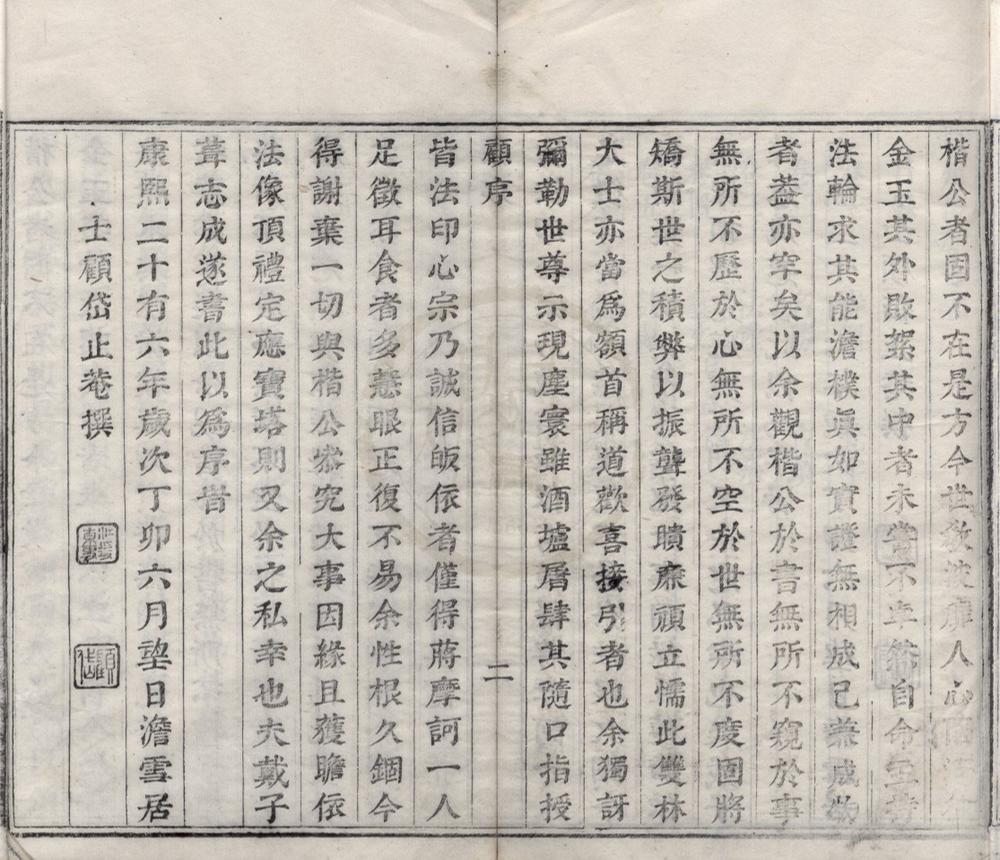 楷公者固不在是方今世教波靡人心
金玉其外敗絮其中者未嘗不率然自命至若
法輪求其能澹樸真如實證無相成已兼成物
者葢亦罕矣以余觀楷公於書無所不窺於事
無所不歷於心無所不空於世無所不度固將
矯斯世之積弊以振聾發聵廉頑立懦此雙林
大士亦當爲額首稱道歡喜接引者也余獨訝
彌勒世尊示現塵寰雖酒壚屠肆其隨口指授
顧序
二
皆法印心宗乃誠信皈依者僅得蔣摩訶一人
足徵耳食者多慧眼正復不易余性根久錮今
得謝棄一切與楷公叅究大事因緣且獲瞻依
法像頂禮定應寶塔則又余之私幸也夫戴子
葺志成遂書此以爲序旹
康熙二十有六年歲次丁卯六月望日澹雪居
士顧岱止菴撰
顧岱